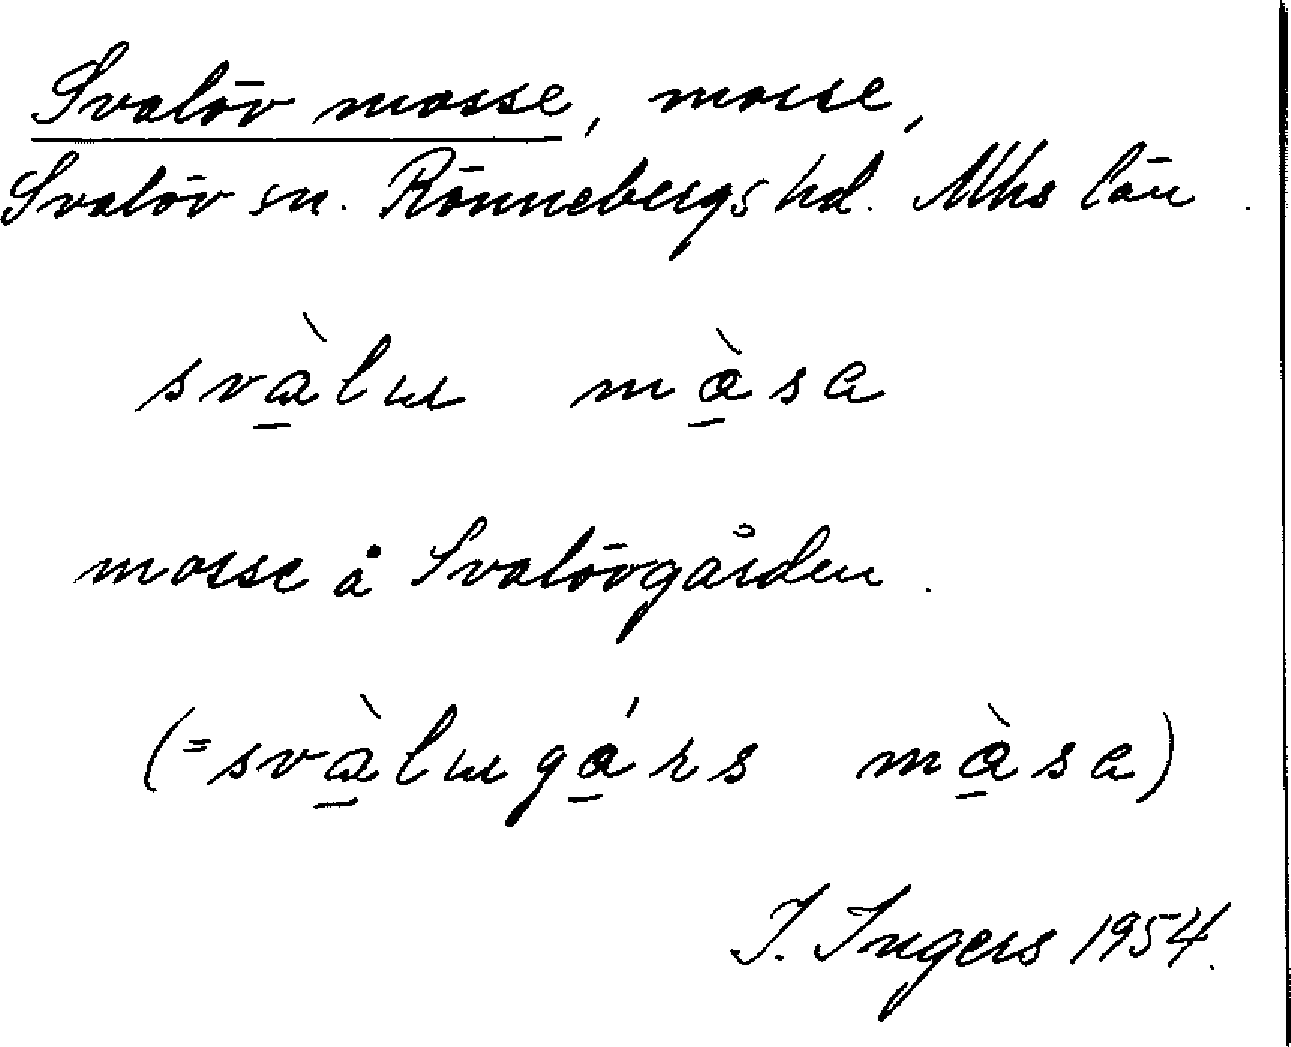 Svalöv mosse, mosse,
Svalöv sn. Rönnebergs hd. Mhs län.
svàlɯ mòsa
mosse å Svalövgården.
(=svàlɯgárs mòsa)
I. Ingers 1954.